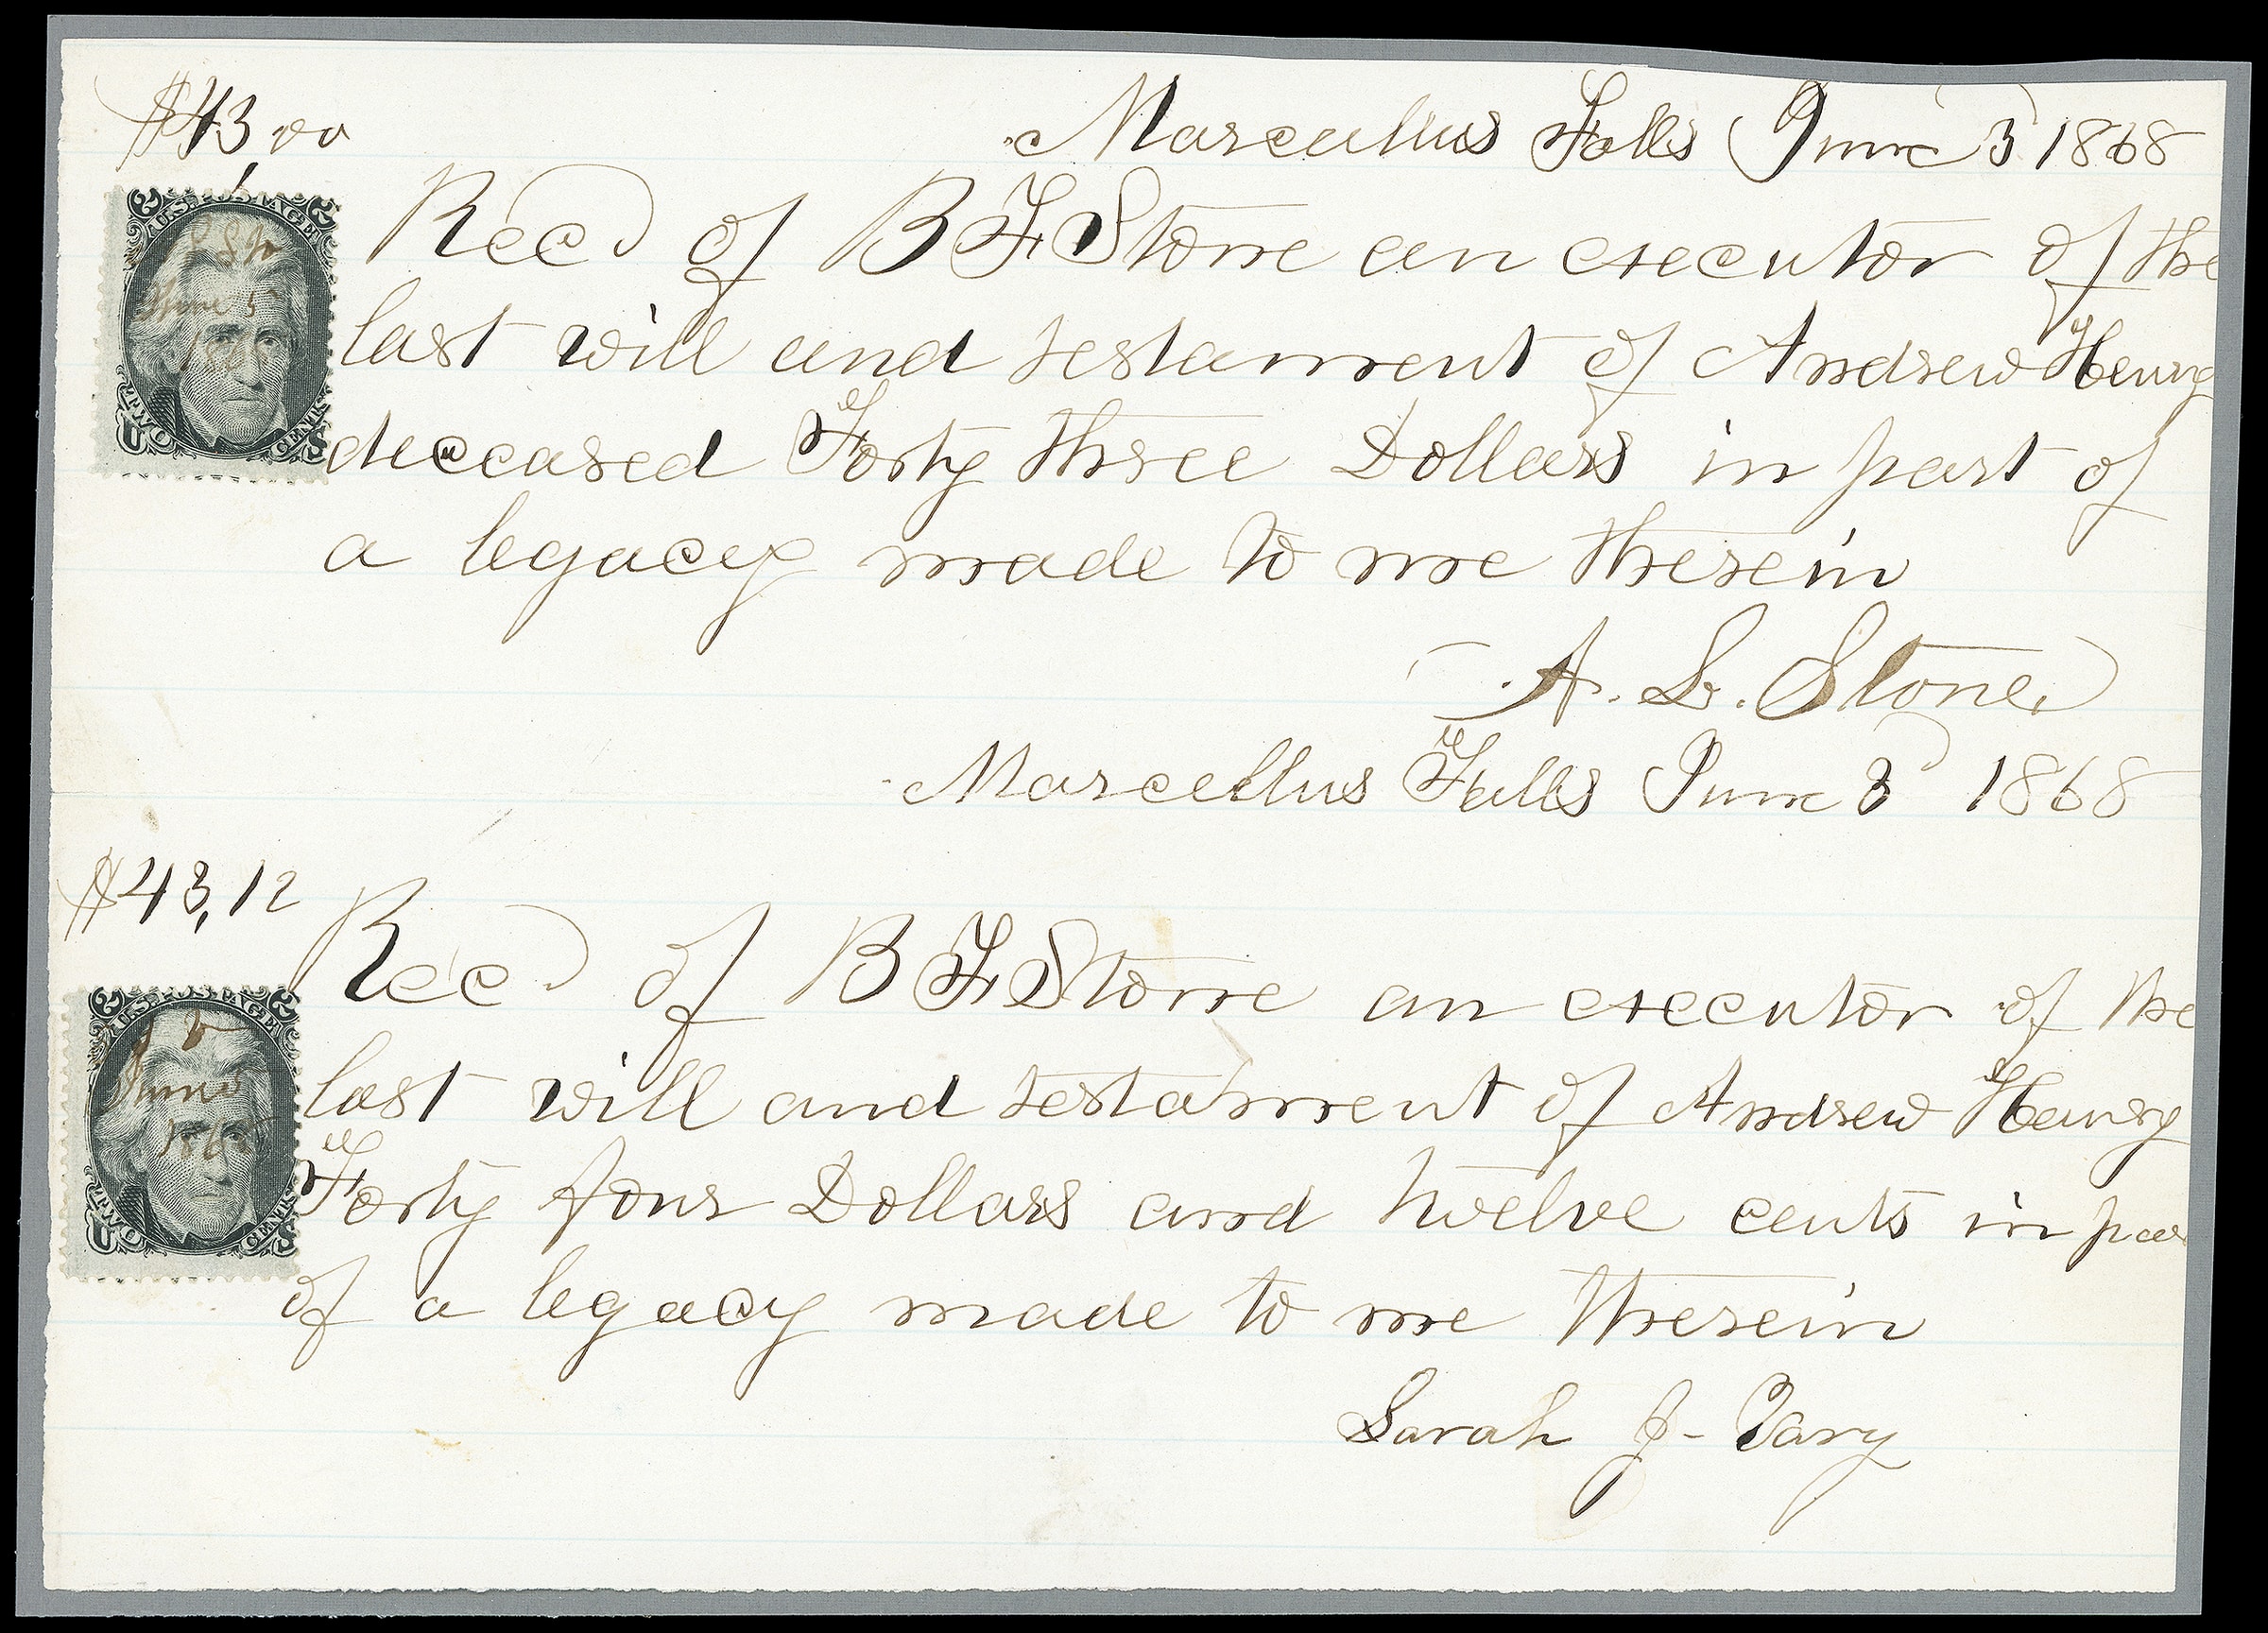 $43,00
Marcellus Falls June 3 1868
U.S. POSTAGE
2 2
June 3
1868
TWO CENTS
U S
Recd of B F Stone an executor of the
last will and testament of Andrew Henry
deceased Forty three Dollars in part of
a legacy made to me therein
A. L. Stone
Marcellus Falls June 3 1868
$43,12
U.S. POSTAGE
2 2
June 3
1868
TWO CENTS
U S
Recd of B F Stone an executor of the
last will and testament of Andrew Henry
Forty four Dollars and twelve cents in par
of a legacy made to me therein
Sarah J-